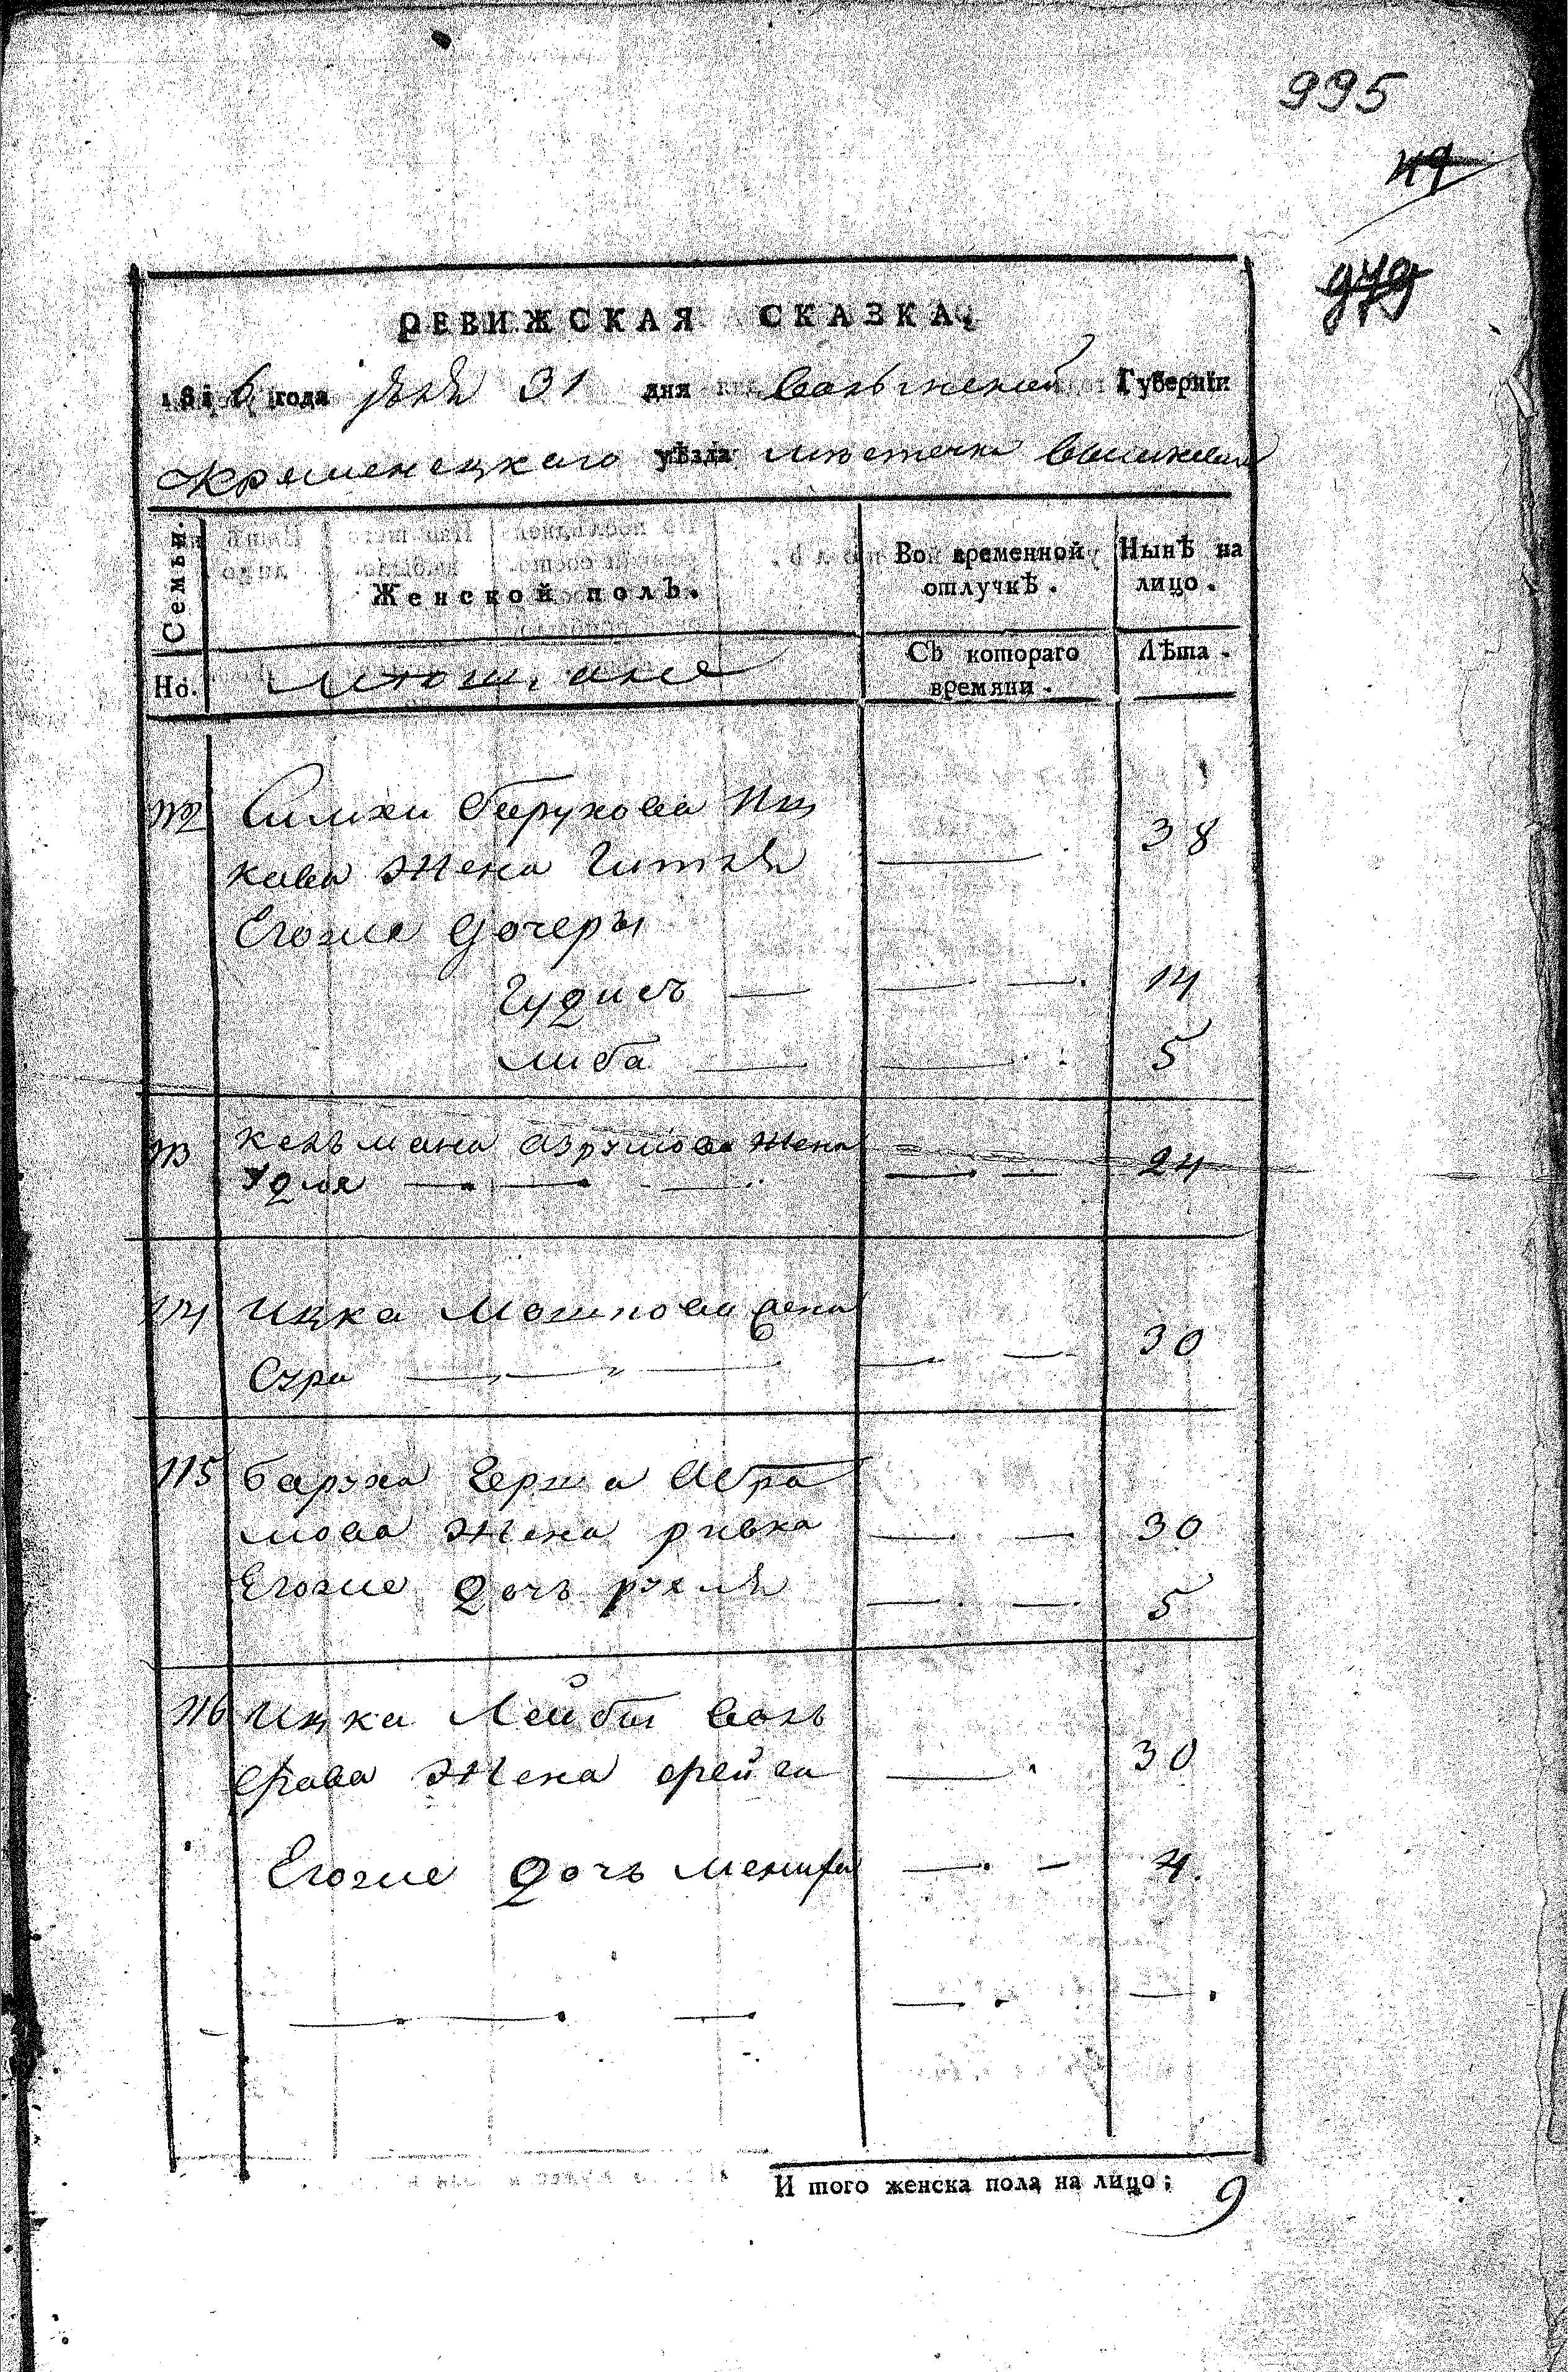 995
49
979
РЕВИЖСКАЯ СКАЗКА.
1816 года Июля 31 дня Волынской Губернїи
Кременецкаго уѣзда местечка
Семьи.
Женской полъ.
Во временной отлучкѣ.
Нынѣ на лицо.
Но.
Съ котораго времяни.
Лѣта.
112 Симхи Берухова Иц
кова Жена Гитля 38
Егоже дочеры
Гудись 14
Либа 5
113 Кельмана Аврумова Жена
Удля 24
114 Ицка Мошкова жена
Сура 30
115 Баруха Герша Абра
мова Жена ривка 30
Егоже дочь рухля 5
116 Ицка Лейбы Воль
фова Жена фрейга 30
Егоже дочь 4.
И того женска пола на лицо; 9